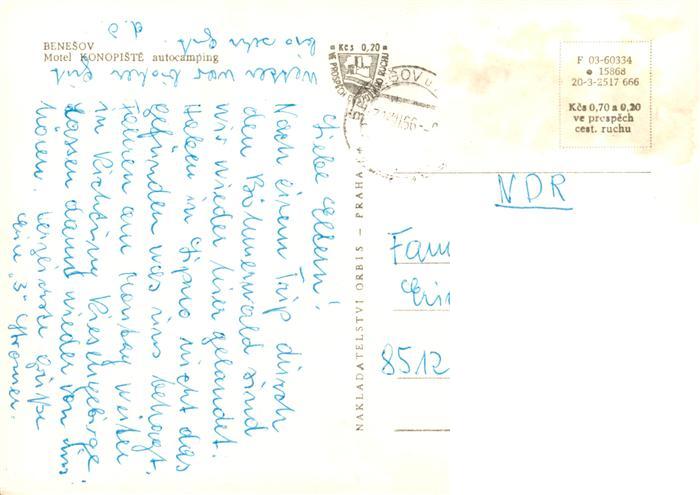 BENEŠOV
Motel KONOPIŠTĚ autocamping
Liebe Eltern!
Nach einem Trip durch
den Böhmerwald sind
wir wieder hier gelandet.
Haben in Lipno nicht das
gefunden was uns behagt.
Fahren am Montag weiter
in Richtung Riesengebirge
lassen dann wieder von uns
hören. Herzlichste Grüße
eure 3
Wetter war bisher gut
bis sehr gut.
d.O.
Kčs 0,20
NAKLADATELSTVÍ ORBIS – PRAHA
F 03-60334
15868
20-3-2517 666
Kčs 0,70 a 0,20
ve prospěch
cest. ruchu
NDR
Fam
8512